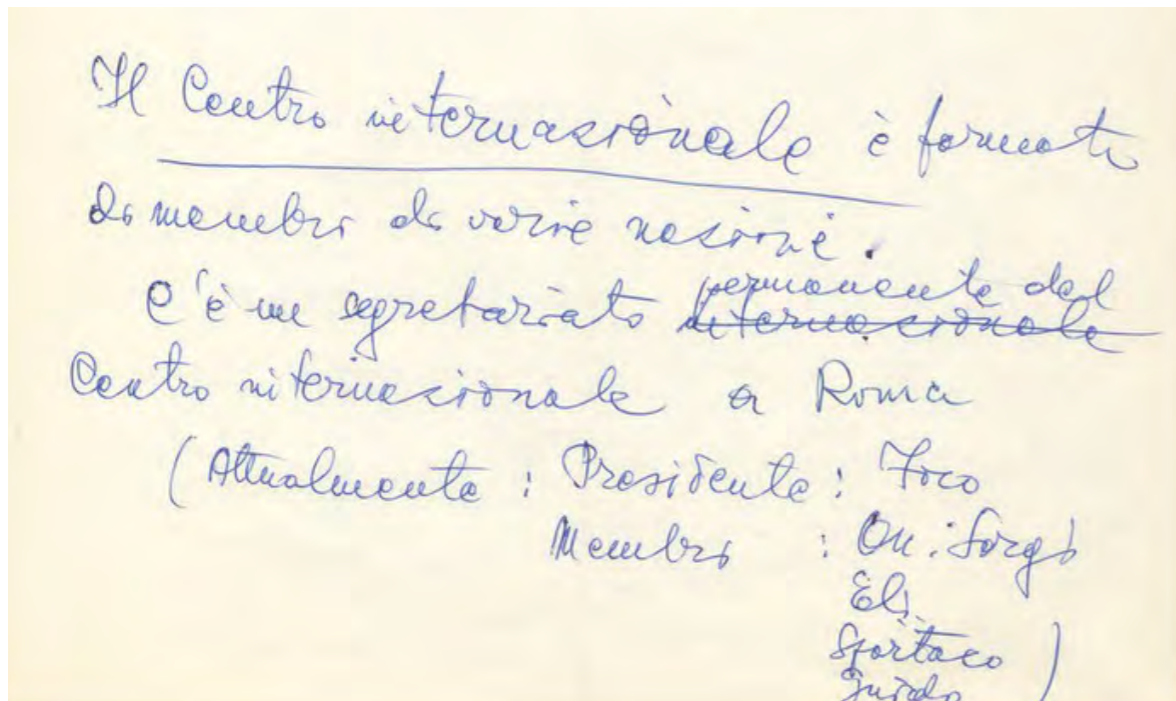 Il Centro internazionale è formato
da membri di varie nazioni.
C'è un segretariato permanente del
internazionale
Centro internazionale a Roma
(Attualmente : Presidente : Foco
Membri : On. Sorgi
Eli
Spartaco )
Guido